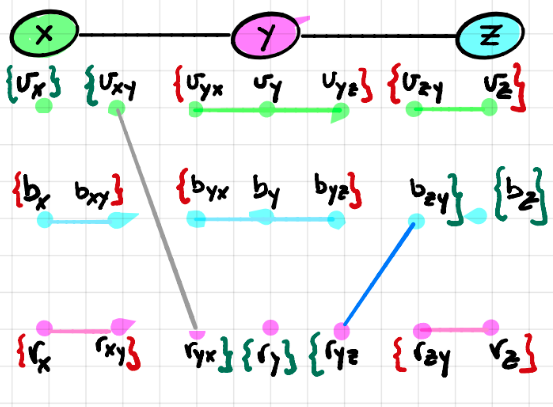 X Y Z
{vx} {vxy {vyx vy vyz} {vzy vz}
{bx bxy} {byx by byz} bzy} {bz}
{rx rxy} ryx} {ry} {ryz {rzy rz}